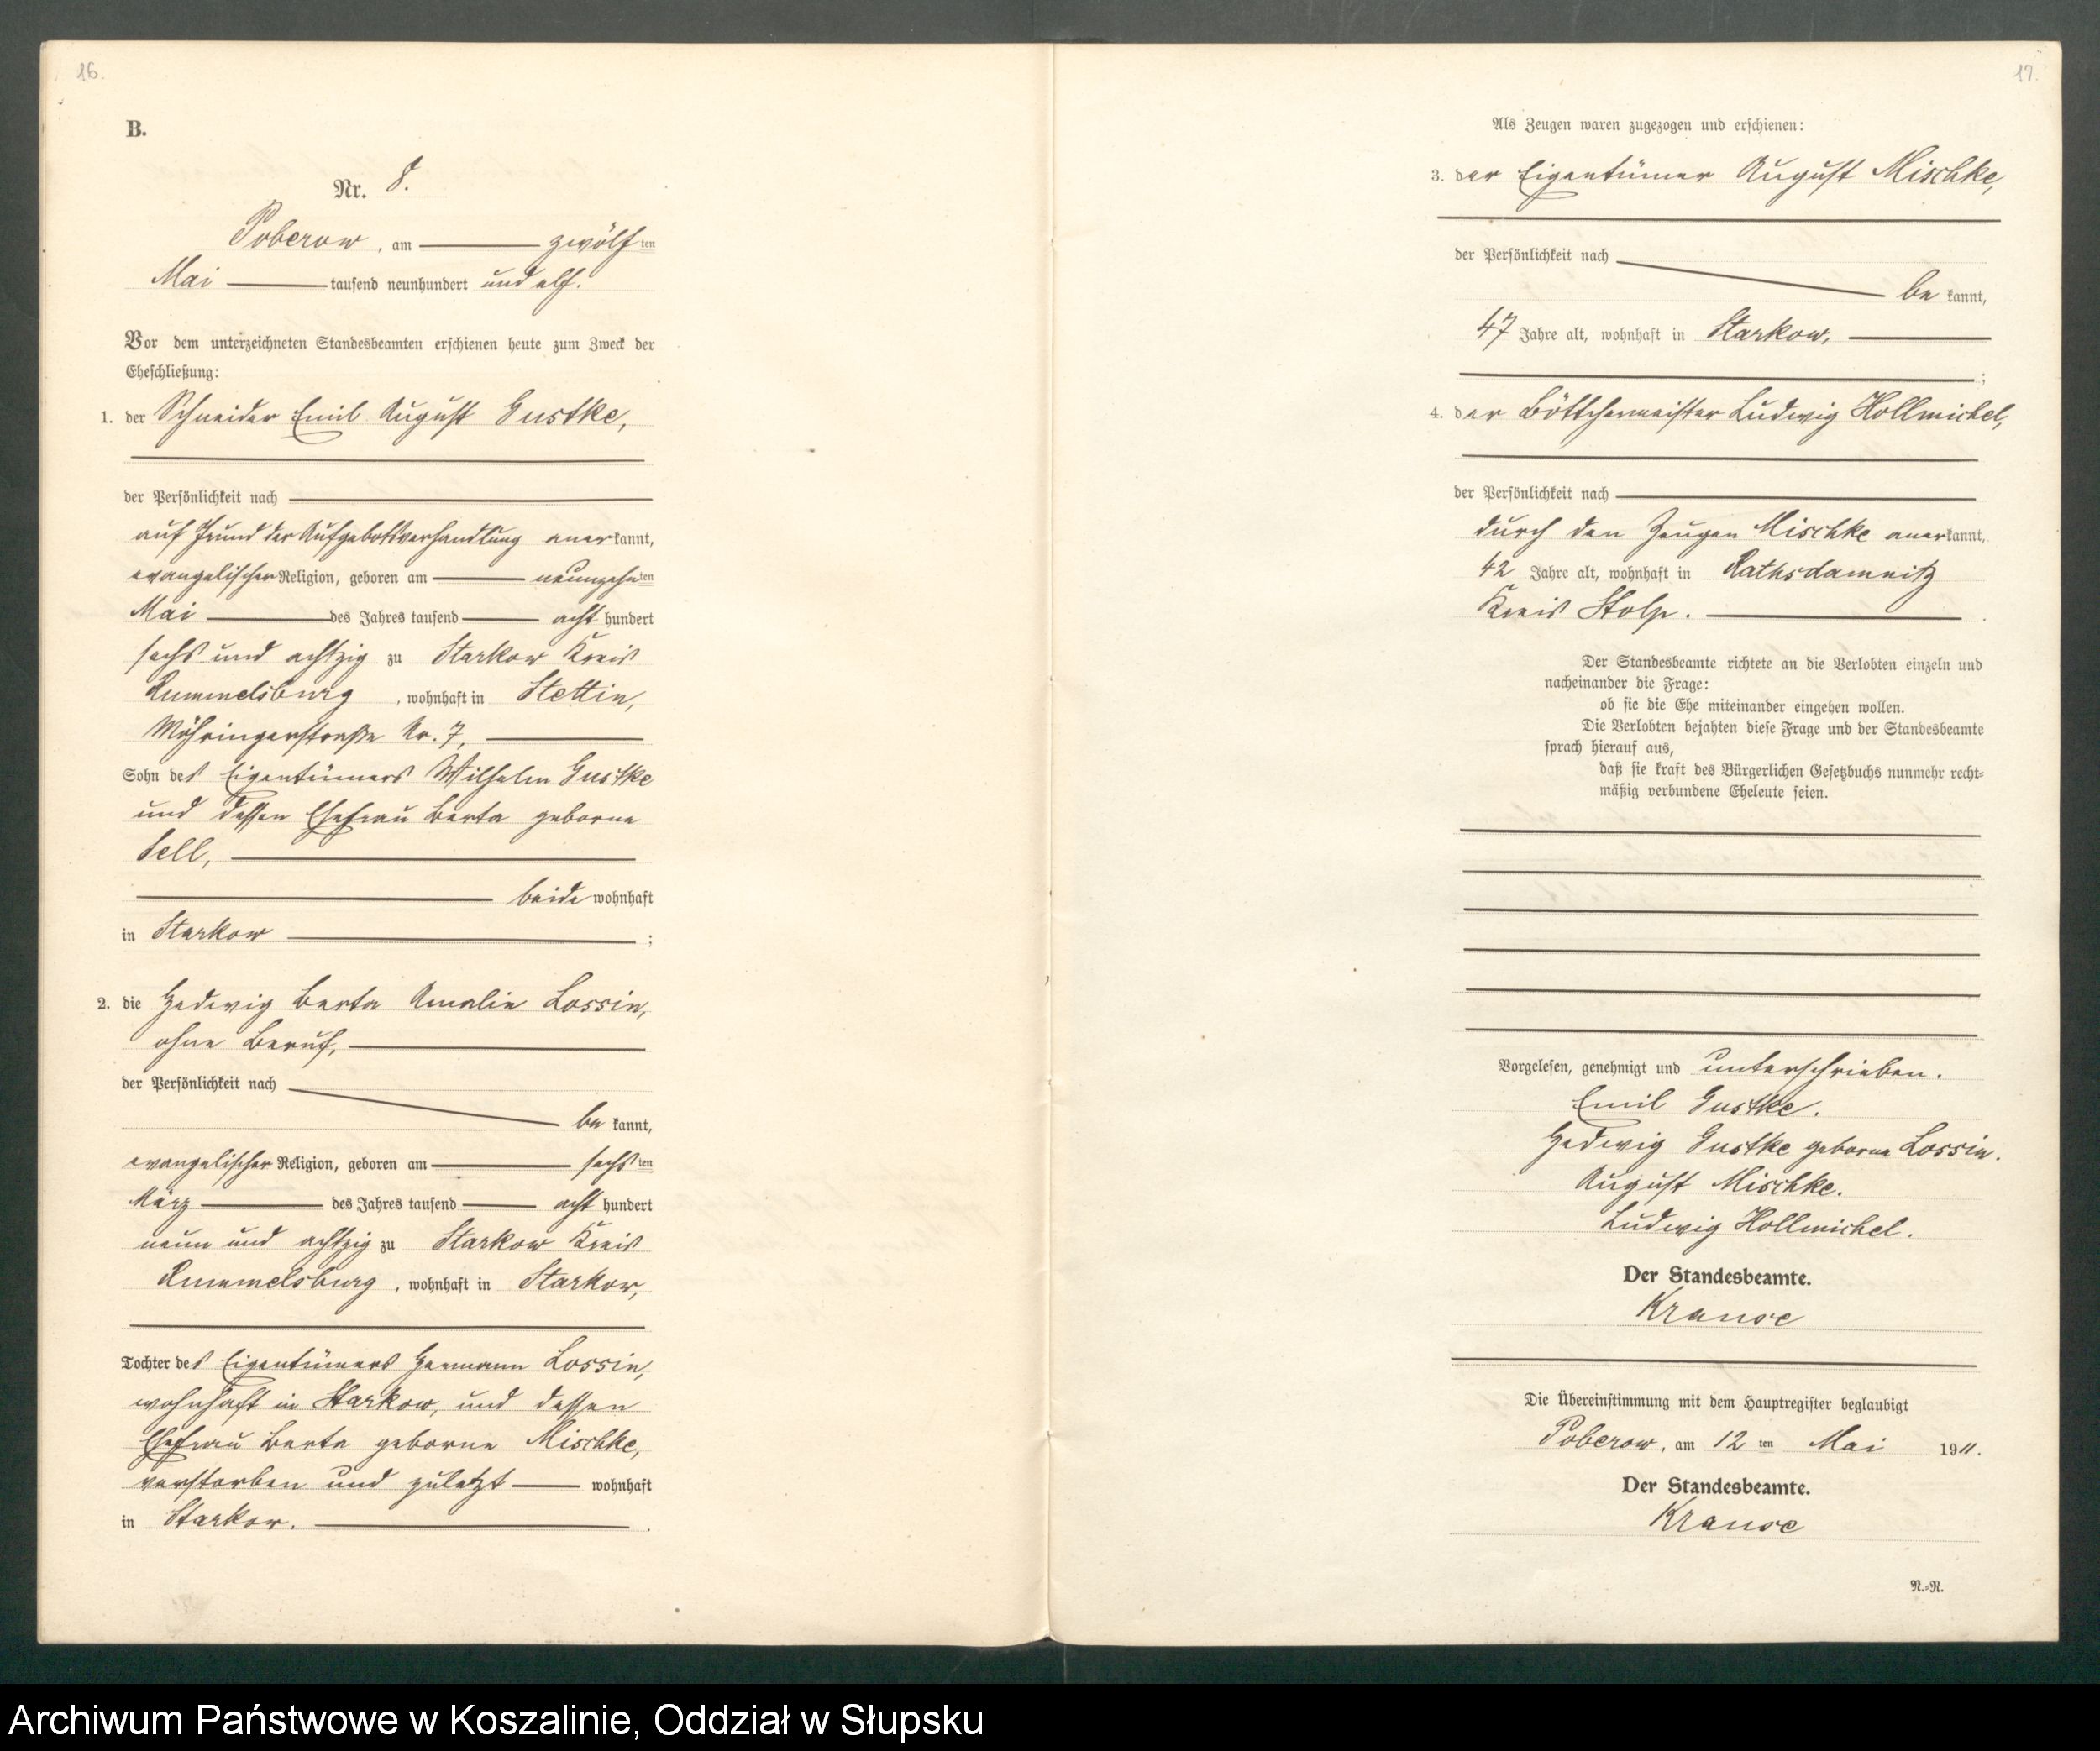 16.
B.
Nr. 8.
Poberow, am zwölften
Mai tausend neunhundert und elf.
Vor dem unterzeichneten Standesbeamten erschienen heute zum Zweck der
Eheschließung:
1. der Schneider Emil August Gustke,
der Persönlichkeit nach
auf Grund der Aufgebotsverhandlung anerkannt,
evangelischer Religion, geboren am neunzehnten
Mai des Jahres tausend acht hundert
sechs und achtzig zu Starkow Kreis
Rummelsburg, wohnhaft in Stettin,
Möhringerstraße Nr. 7,
Sohn des Eigentümers Wilhelm Gustke
und dessen Ehefrau Berta geborne
Sell,
beide wohnhaft
in Starkow ;
2. die Hedwig Berta Amalie Lossin,
ohne Beruf,
der Persönlichkeit nach
be kannt,
evangelischer Religion, geboren am sechsten
März des Jahres tausend acht hundert
neun und achtzig zu Starkow Kreis
Rummelsburg, wohnhaft in Starkow,
Tochter des Eigentümers Hermann Lossin,
wohnhaft in Starkow, und dessen
Ehefrau Berta geborne Mischke,
verstorben und zuletzt wohnhaft
in Starkow.
17.
Als Zeugen waren zugezogen und erschienen:
3. der Eigentümer August Mischke,
der Persönlichkeit nach
be kannt,
47 Jahre alt, wohnhaft in Starkow,
;
4. der Böttchermeister Ludwig Hollmichel,
der Persönlichkeit nach
durch den Zeugen Mischke anerkannt,
42 Jahre alt, wohnhaft in Rathsdamnitz
Kreis Stolp.
Der Standesbeamte richtete an die Verlobten einzeln und
nacheinander die Frage:
ob sie die Ehe miteinander eingehen wollen.
Die Verlobten bejahten diese Frage und der Standesbeamte
sprach hierauf aus,
daß sie kraft des Bürgerlichen Gesetzbuchs nunmehr recht-
mäßig verbundene Eheleute seien.
Vorgelesen, genehmigt und unterschrieben.
Emil Gustke.
Hedwig Gustke geborne Lossin.
August Mischke.
Ludwig Hollmichel.
Der Standesbeamte.
Krause
Die Übereinstimmung mit dem Hauptregister beglaubigt
Poberow, am 12 ten Mai 1911.
Der Standesbeamte.
Krause
N.-R.
Archiwum Państwowe w Koszalinie, Oddział w Słupsku